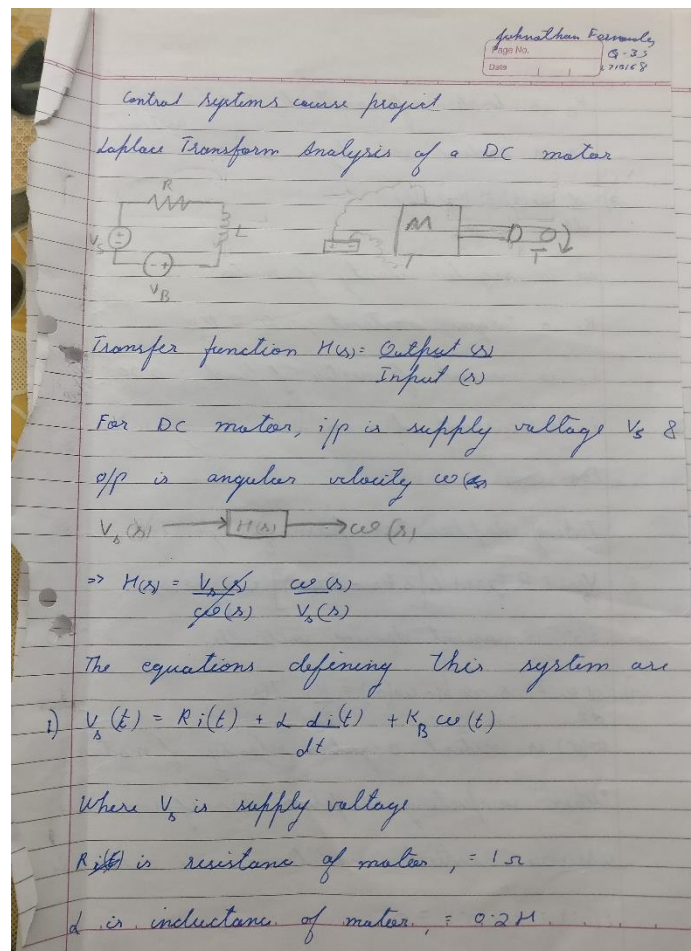 Johnathan Fernandes
Page No.
G-35
Date
Control systems course project
Laplace Transform Analysis of a DC motor
R
L
Vs
VB
M
T
Transfer function H(s) = Output (s)
Input (s)
For DC motor, i/p is supply voltage Vs &
o/p is angular velocity ω
Vs(s) → H(s) → ω(s)
=> H(s) = Vs(s) ω(s)
ω(s) Vs(s)
The equations defining this system are
1) Vs(t) = Ri(t) + L di(t) + KB ω(t)
dt
Where Vs is supply voltage
R is resistance of motor, = 1Ω
L is inductance of motor, = 0.2H